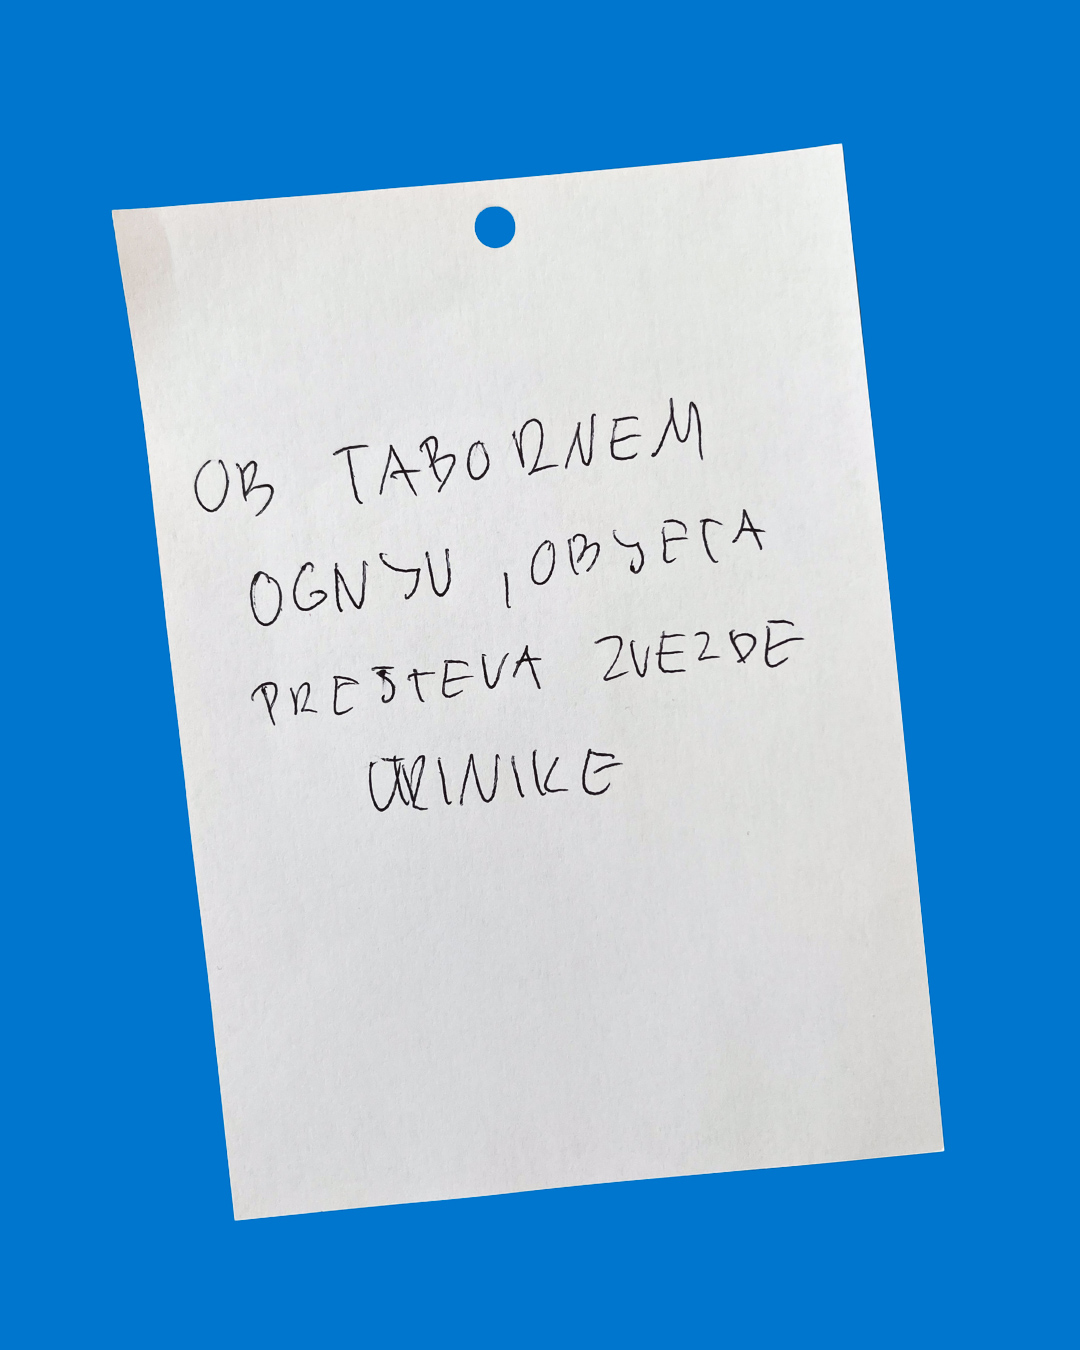 OB TABORNEM
OGNJU , OBJETA
PREŠTEVA ZVEZDE
UTRINIKE